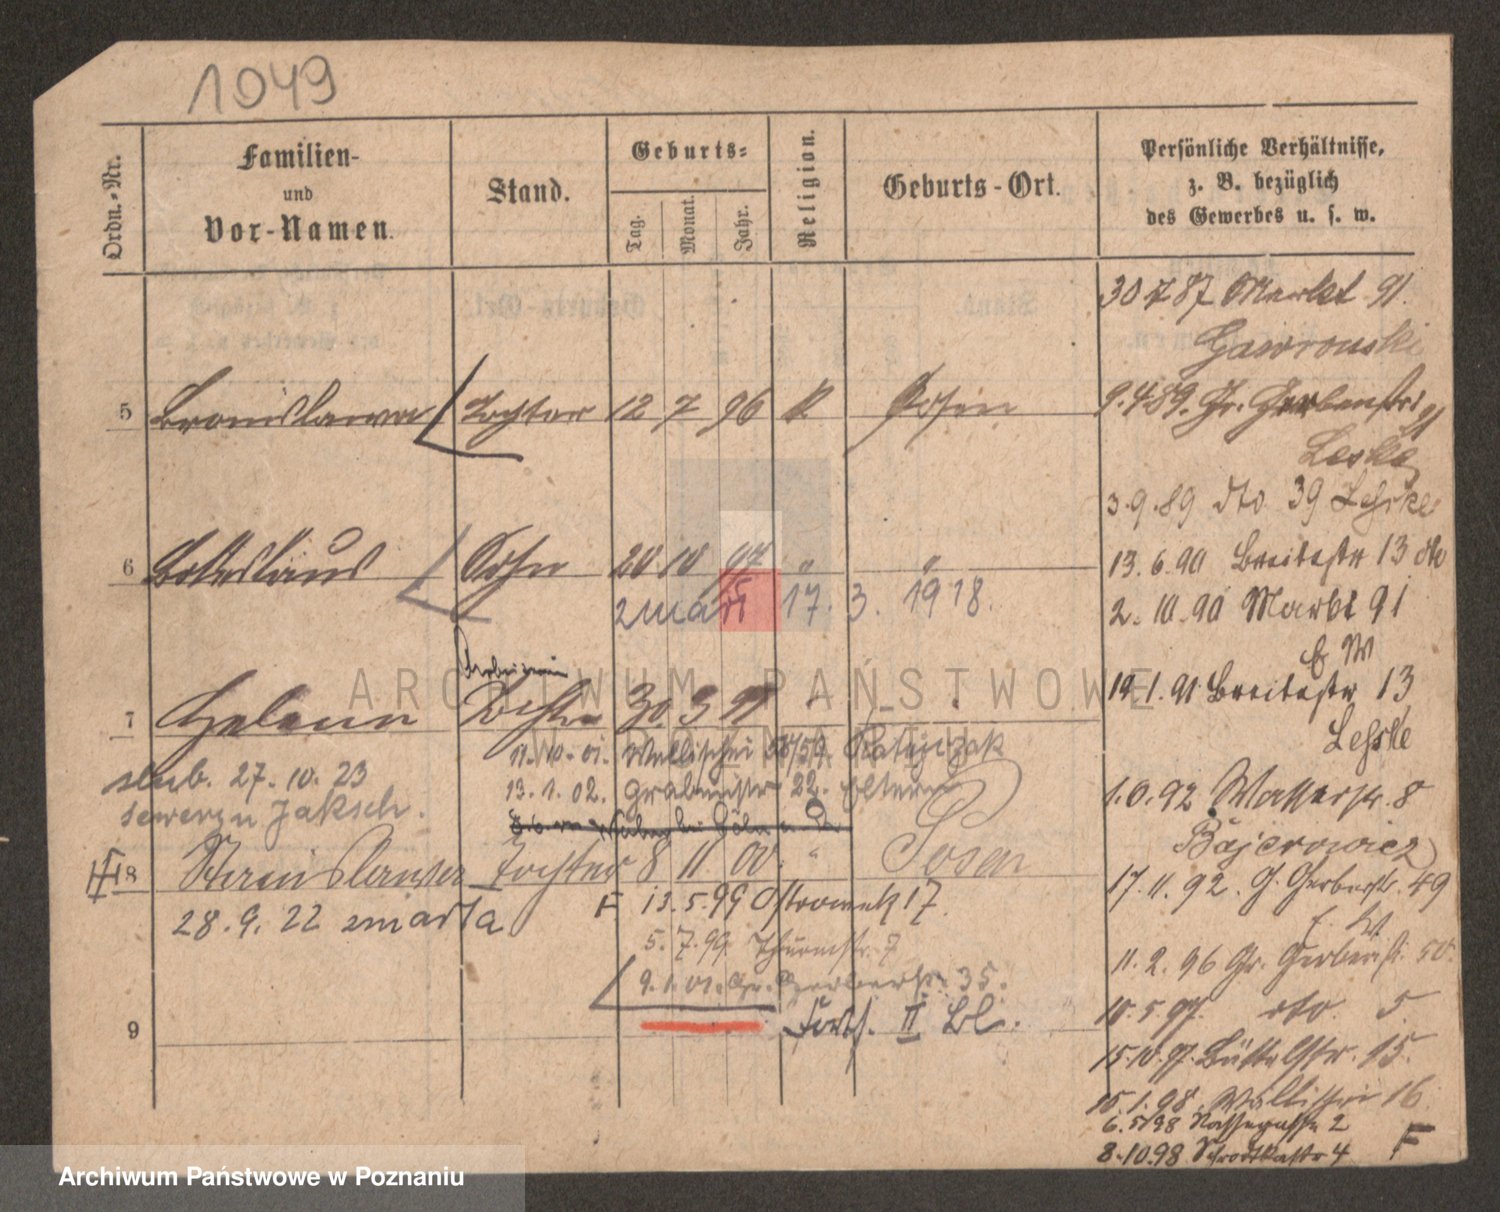 1049
Ordn.-Nr.
Familien-
und
Vor-Namen.
Stand.
Geburts-
Tag.
Monat.
Jahr.
Religion.
Geburts-Ort.
Persönliche Verhältnisse,
z. B. bezüglich
des Gewerbes u. s. w.
30 7 87 Markt 91.
Gawronski
5 Bronislawa Tochter 12 7 96 k Posen
9.4.89. Gr. Gerberstr.
Leske
3.9.89 dto 39 Leske
6 Boleslaus Sohn 20 10 97 " "
13.6.90 Breitestr 13
2. 10. 90 Markt 91
zmarł 17. 3. 1918.
E W
Arbeiterin
7 Helena Tochter 30 3 99
19.1.91 Breitestr 13
Leske
11.10.01. Wallischei Ratajczak
ślub. 27.10.23
13.1.02. Grabenstr 22. Eltern
1.0.92 Wasserstr. 8
seweryn Jaksch.
Bajerowicz
8 Stanislawa Tochter 8 11 00. " Posen
17.11.92. G. Gerberstr. 49
28.9.22 zmarła
F 13.5.99 Ostrowek 17.
5.7.99 Thurmstr. 7
11.2.96 Gr. Gerberstr. 50.
9.1.01. Gr. Gerberstr. 35.
9
Forts. II Bl.
10.5.97. dto. 5.
15.10.97. Büttelstr. 15.
15.1.98. Wallischei 16.
6.5.98 Nassegasse 2
8.10.98 Schrodkastr 4
F
ARCHIWUM PAŃSTWOWE
W POZNANIU
Archiwum Państwowe w Poznaniu